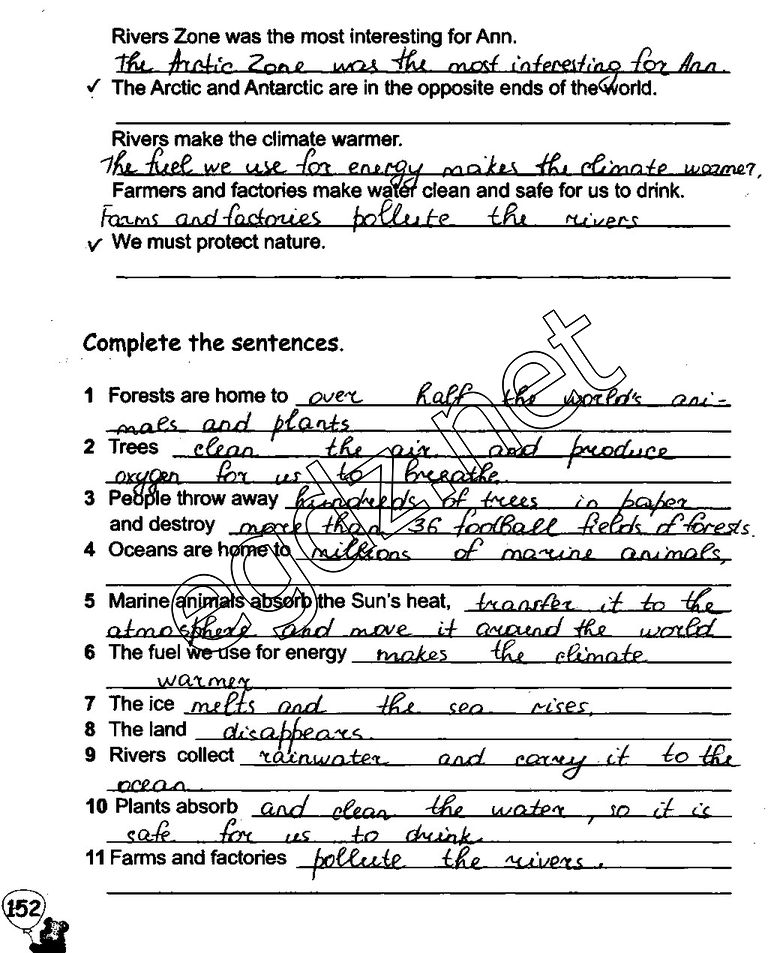 Rivers Zone was the most interesting for Ann.
The Arctic Zone was the most interesting for Ann.
✓ The Arctic and Antarctic are in the opposite ends of the world.
Rivers make the climate warmer.
The fuel we use for energy makes the climate warmer.
Farmers and factories make water clean and safe for us to drink.
Farms and factories pollute the rivers
✓ We must protect nature.
Complete the sentences.
1 Forests are home to over half the world's ani-
mals and plants
2 Trees clean the air and produce
oxygen for us to breathe.
3 People throw away hundreds of trees in paper
and destroy more than 36 football fields of forests.
4 Oceans are home to millions of marine animals,
5 Marine animals absorb the Sun's heat, transfer it to the
atmosphere and move it around the world
6 The fuel we use for energy makes the climate
warmer
7 The ice melts and the sea rises.
8 The land disappears.
9 Rivers collect rainwater and carry it to the
ocean.
10 Plants absorb and clean the water, so it is
safe for us to drink.
11 Farms and factories pollute the rivers.
152
agdz.net